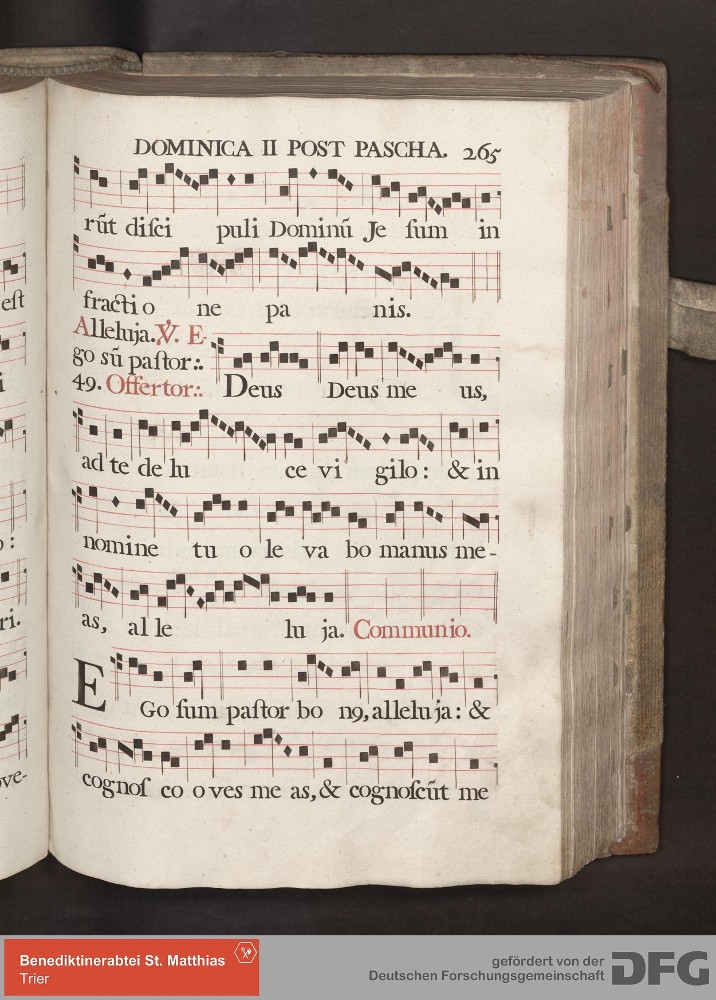 DOMINICA II POST PASCHA. 265
rũt diſci puli Dominũ Je ſum in
fractio ne pa nis.
Alleluja. ℣. E
go sũ paſtor:.
49. Offertor:. Deus Deus me us,
ad te de lu ce vi gilo: & in
nomine tu o le va bo manus me-
as, al le lu ja. Communio.
EGo ſum paſtor bo nꝯ, alleluja: &
cognoſ co o ves me as, & cognoſcũt me
eſt
i
o:
ri.
ove-
Benediktinerabtei St. Matthias
Trier
gefördert von der
Deutschen Forschungsgemeinschaft DFG